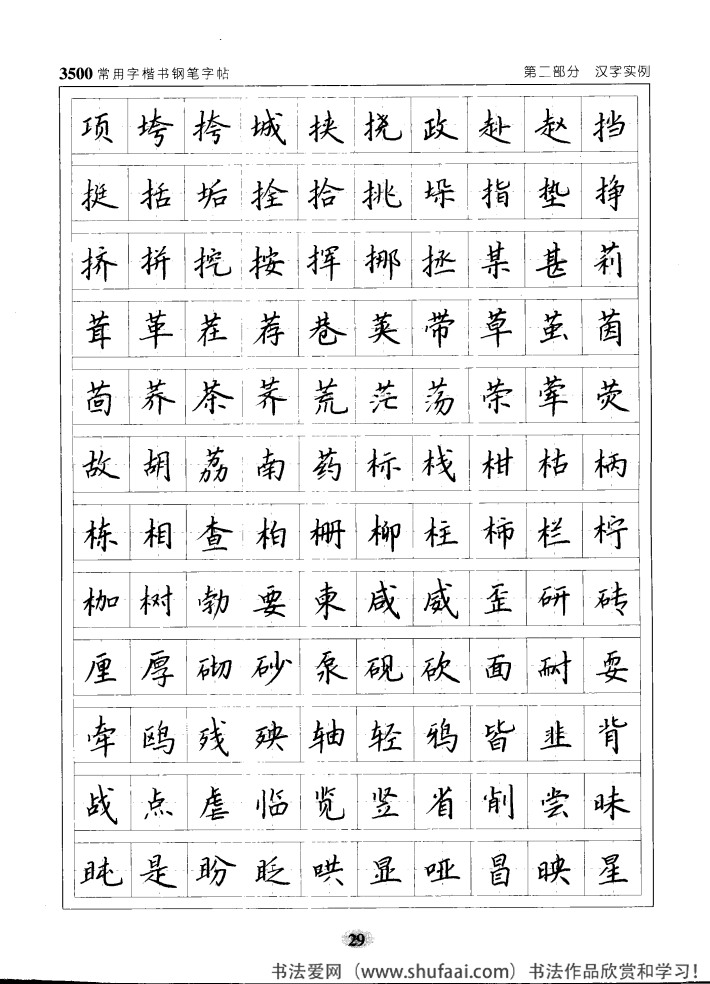 3500常用字楷书钢笔字帖 第二部分 汉字实例
项垮挎城挟挠政赴赵挡
挺括垢拴拾挑垛指垫挣
挤拼挖按挥挪拯某甚荆
茸革茬荐巷荚带草茧茵
茴荞茶荠荒茫荡荣荤荧
故胡荔南药标栈柑枯柄
栋相查柏栅柳柱柿栏柠
枷树勃要柬咸威歪研砖
厘厚砌砂泵砚砍面耐耍
牵鸥残殃轴轻鸦皆韭背
战点虐临览竖省削尝昧
盹是盼眨哄显哑冒映星
29
书法爱网（www.shufaai.com）书法作品欣赏和学习！